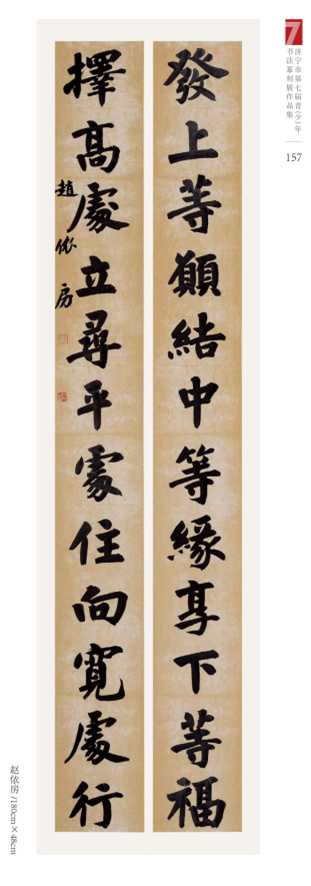 7
济宁市第七届青(少)年
书法篆刻展作品集
157
發上等願結中等緣享下等福
擇高處立尋平處住向寬處行
趙依房
赵依房/180cm×48cm